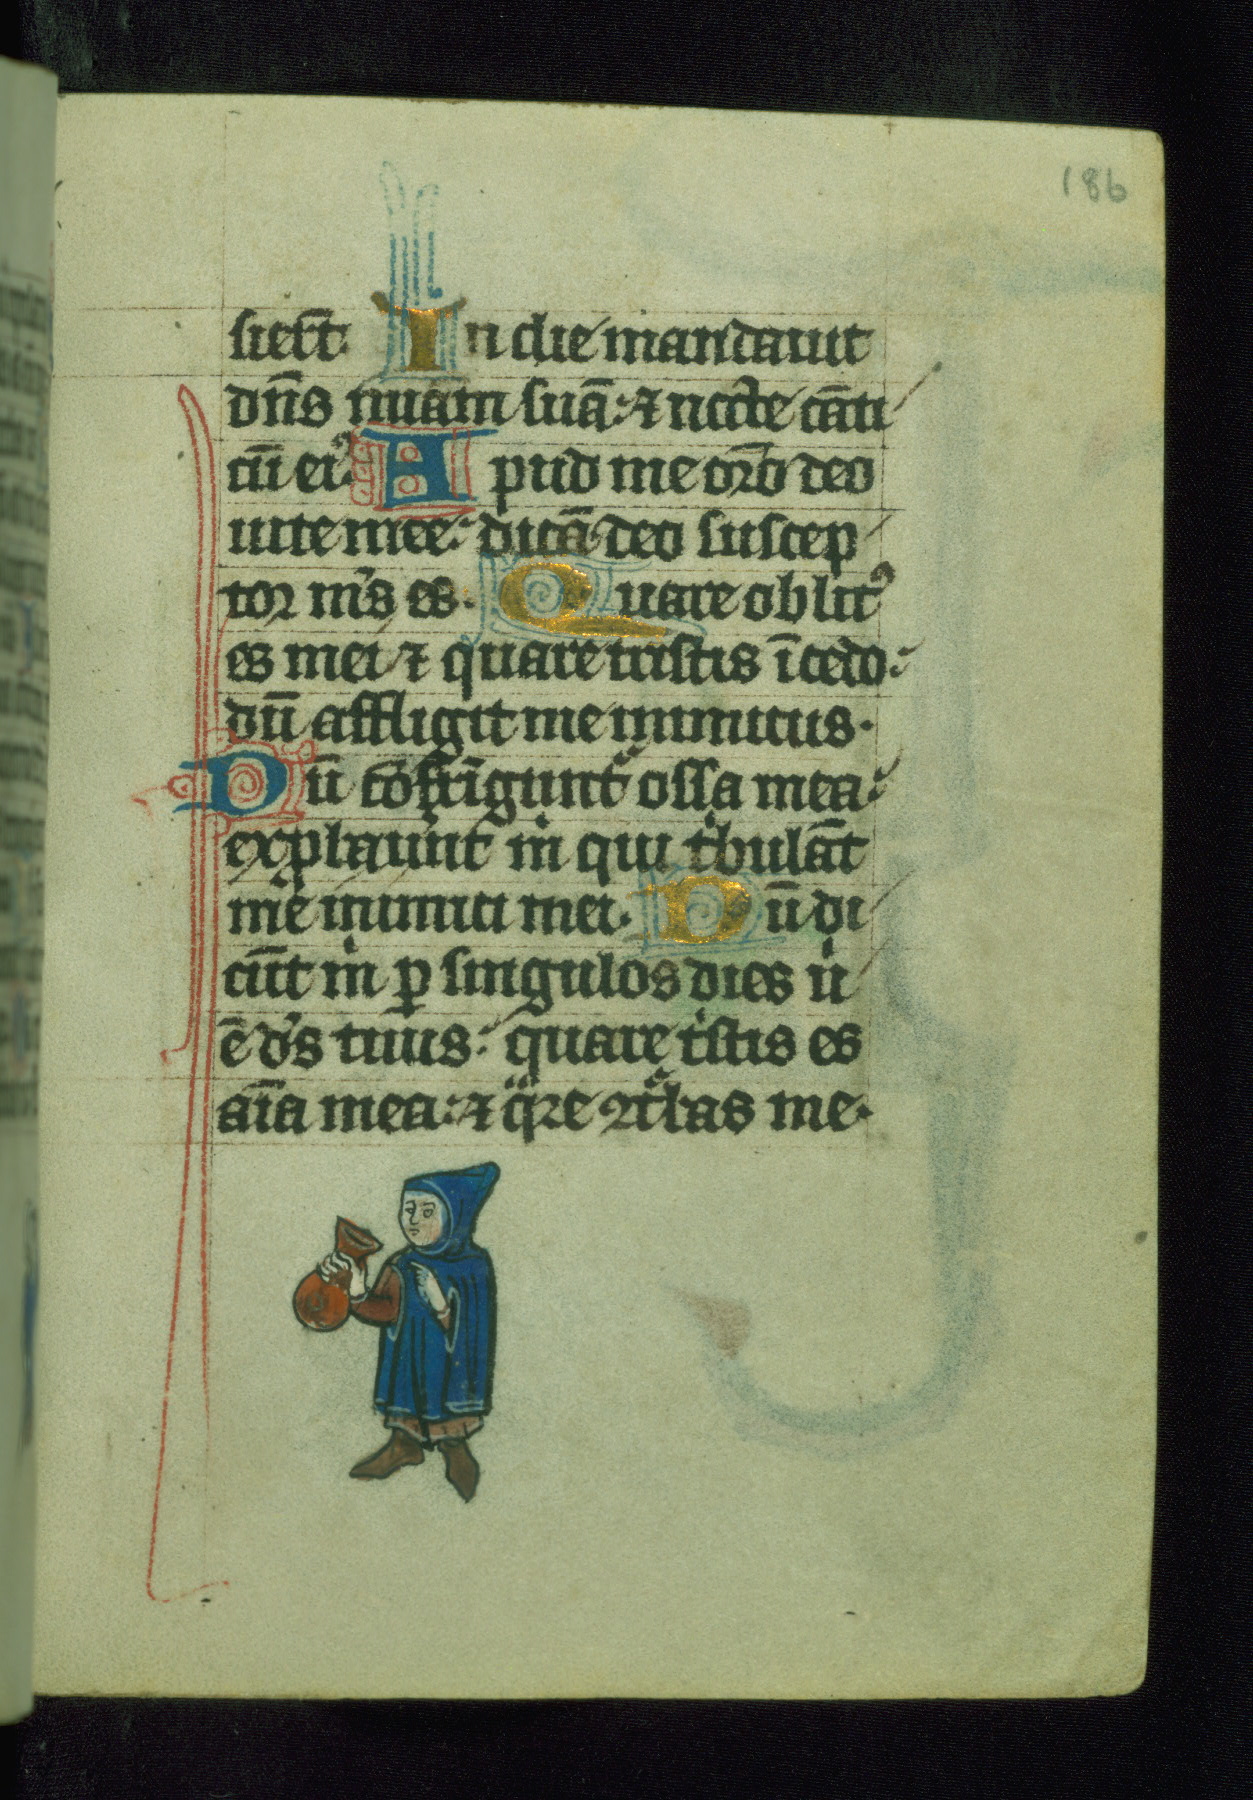 186
sier̄t. In die mandauit
dn̄s miam̄ suā: ⁊ nocte cāti
cū eiꝰ. Apud me or̄o deo
uite mee: dicā deo suscep
tor mͥs es. Quare oblitꝰ
es mei ⁊ quare tristis īcedo:
dū affligit me inimicus.
Dū cōfrīgunt̉ ossa mea:
exp̄bauͬnt m̍ qui tͥbulāt
me inimici mei. Dū di
cūt m̍ ꝑ singulos dies u̍
ē d̄s tuus: quare tͥstis es
aīa mea: ⁊ qͣre ꝯt̉bas me.